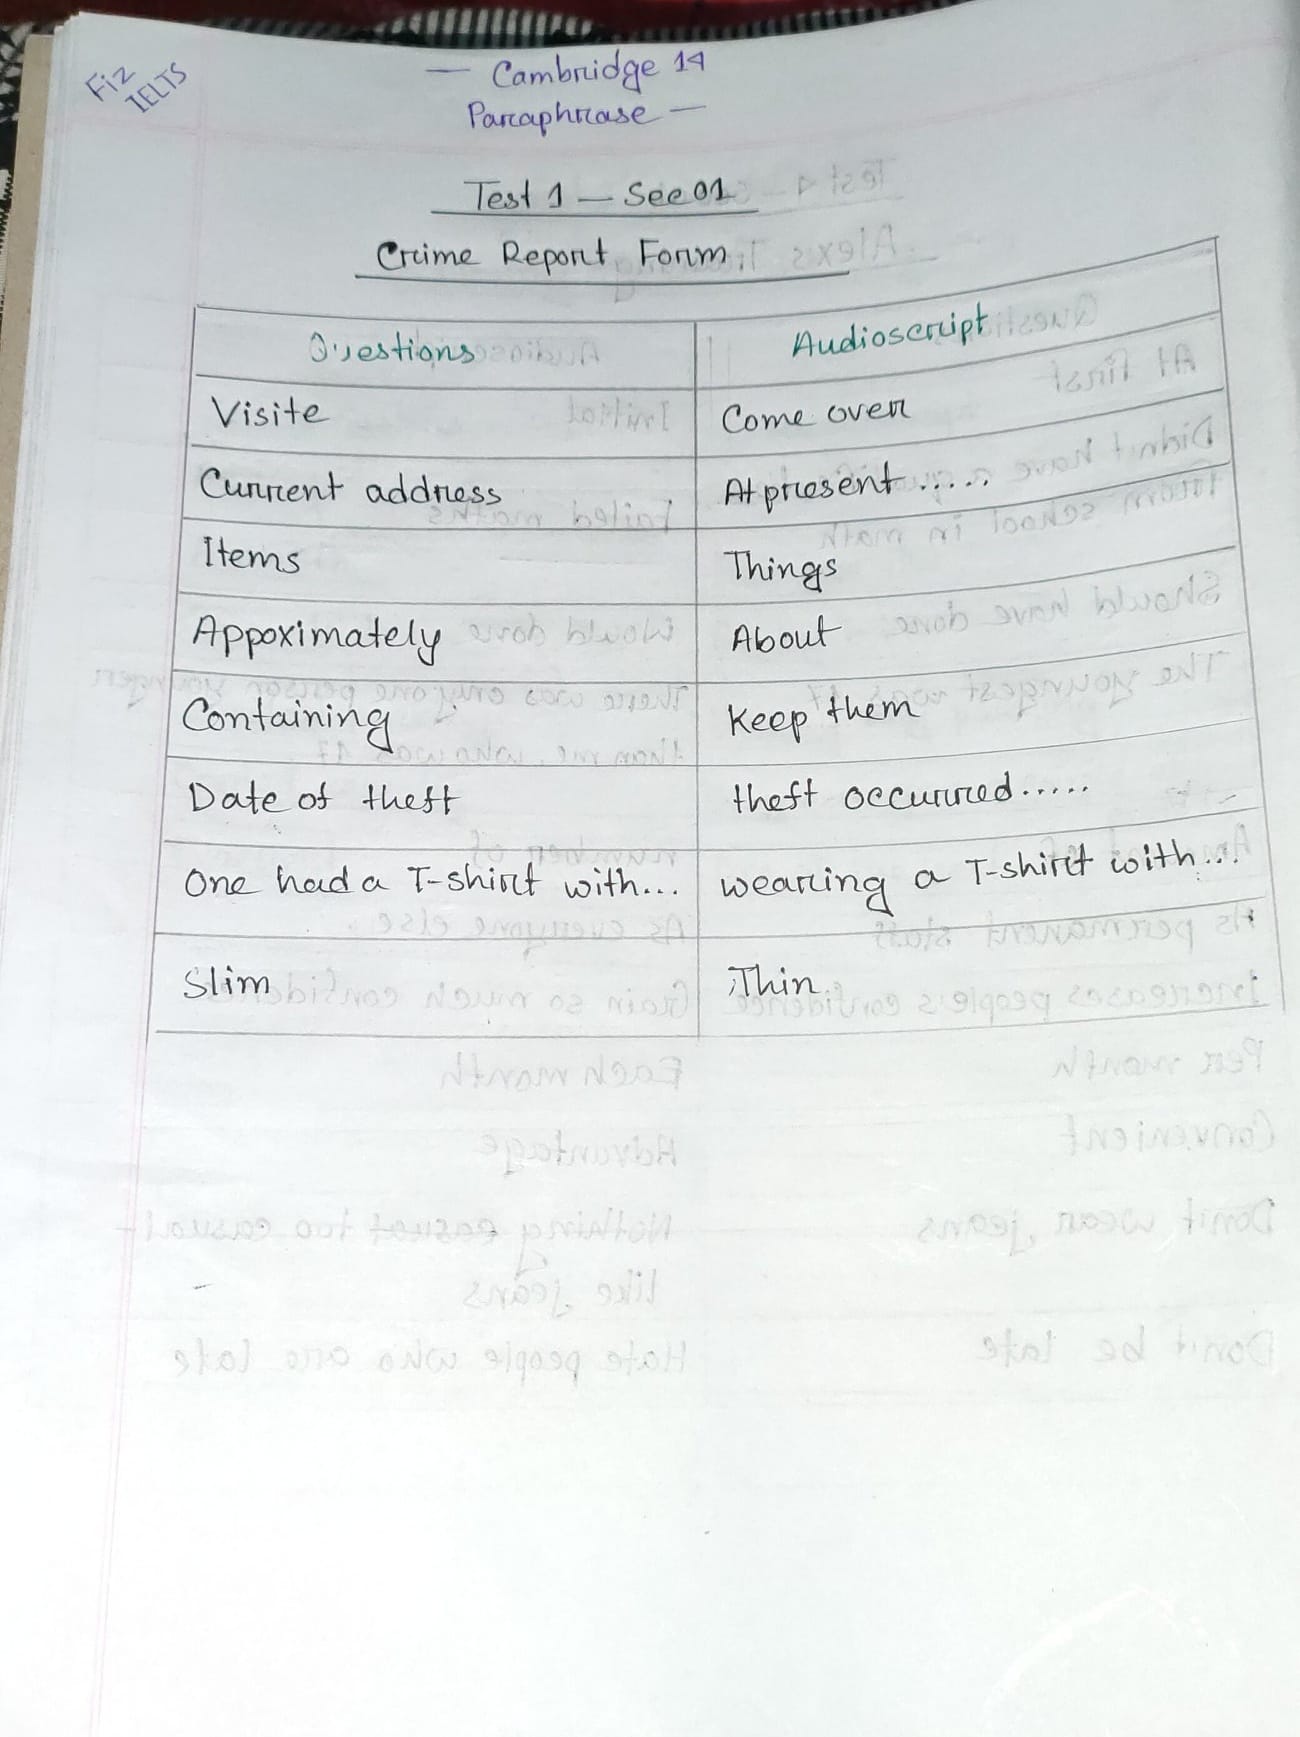 Fiz
IELTS
— Cambridge 14
Paraphrase —
Test 1 — Sec 01
Crime Report Form
Questions Audioscript
Visite Come over
Current address At present.....
Items Things
Appoximately About
Containing Keep them
Date of theft theft occurred.....
One had a T-shirt with... wearing a T-shirt with...
Slim Thin